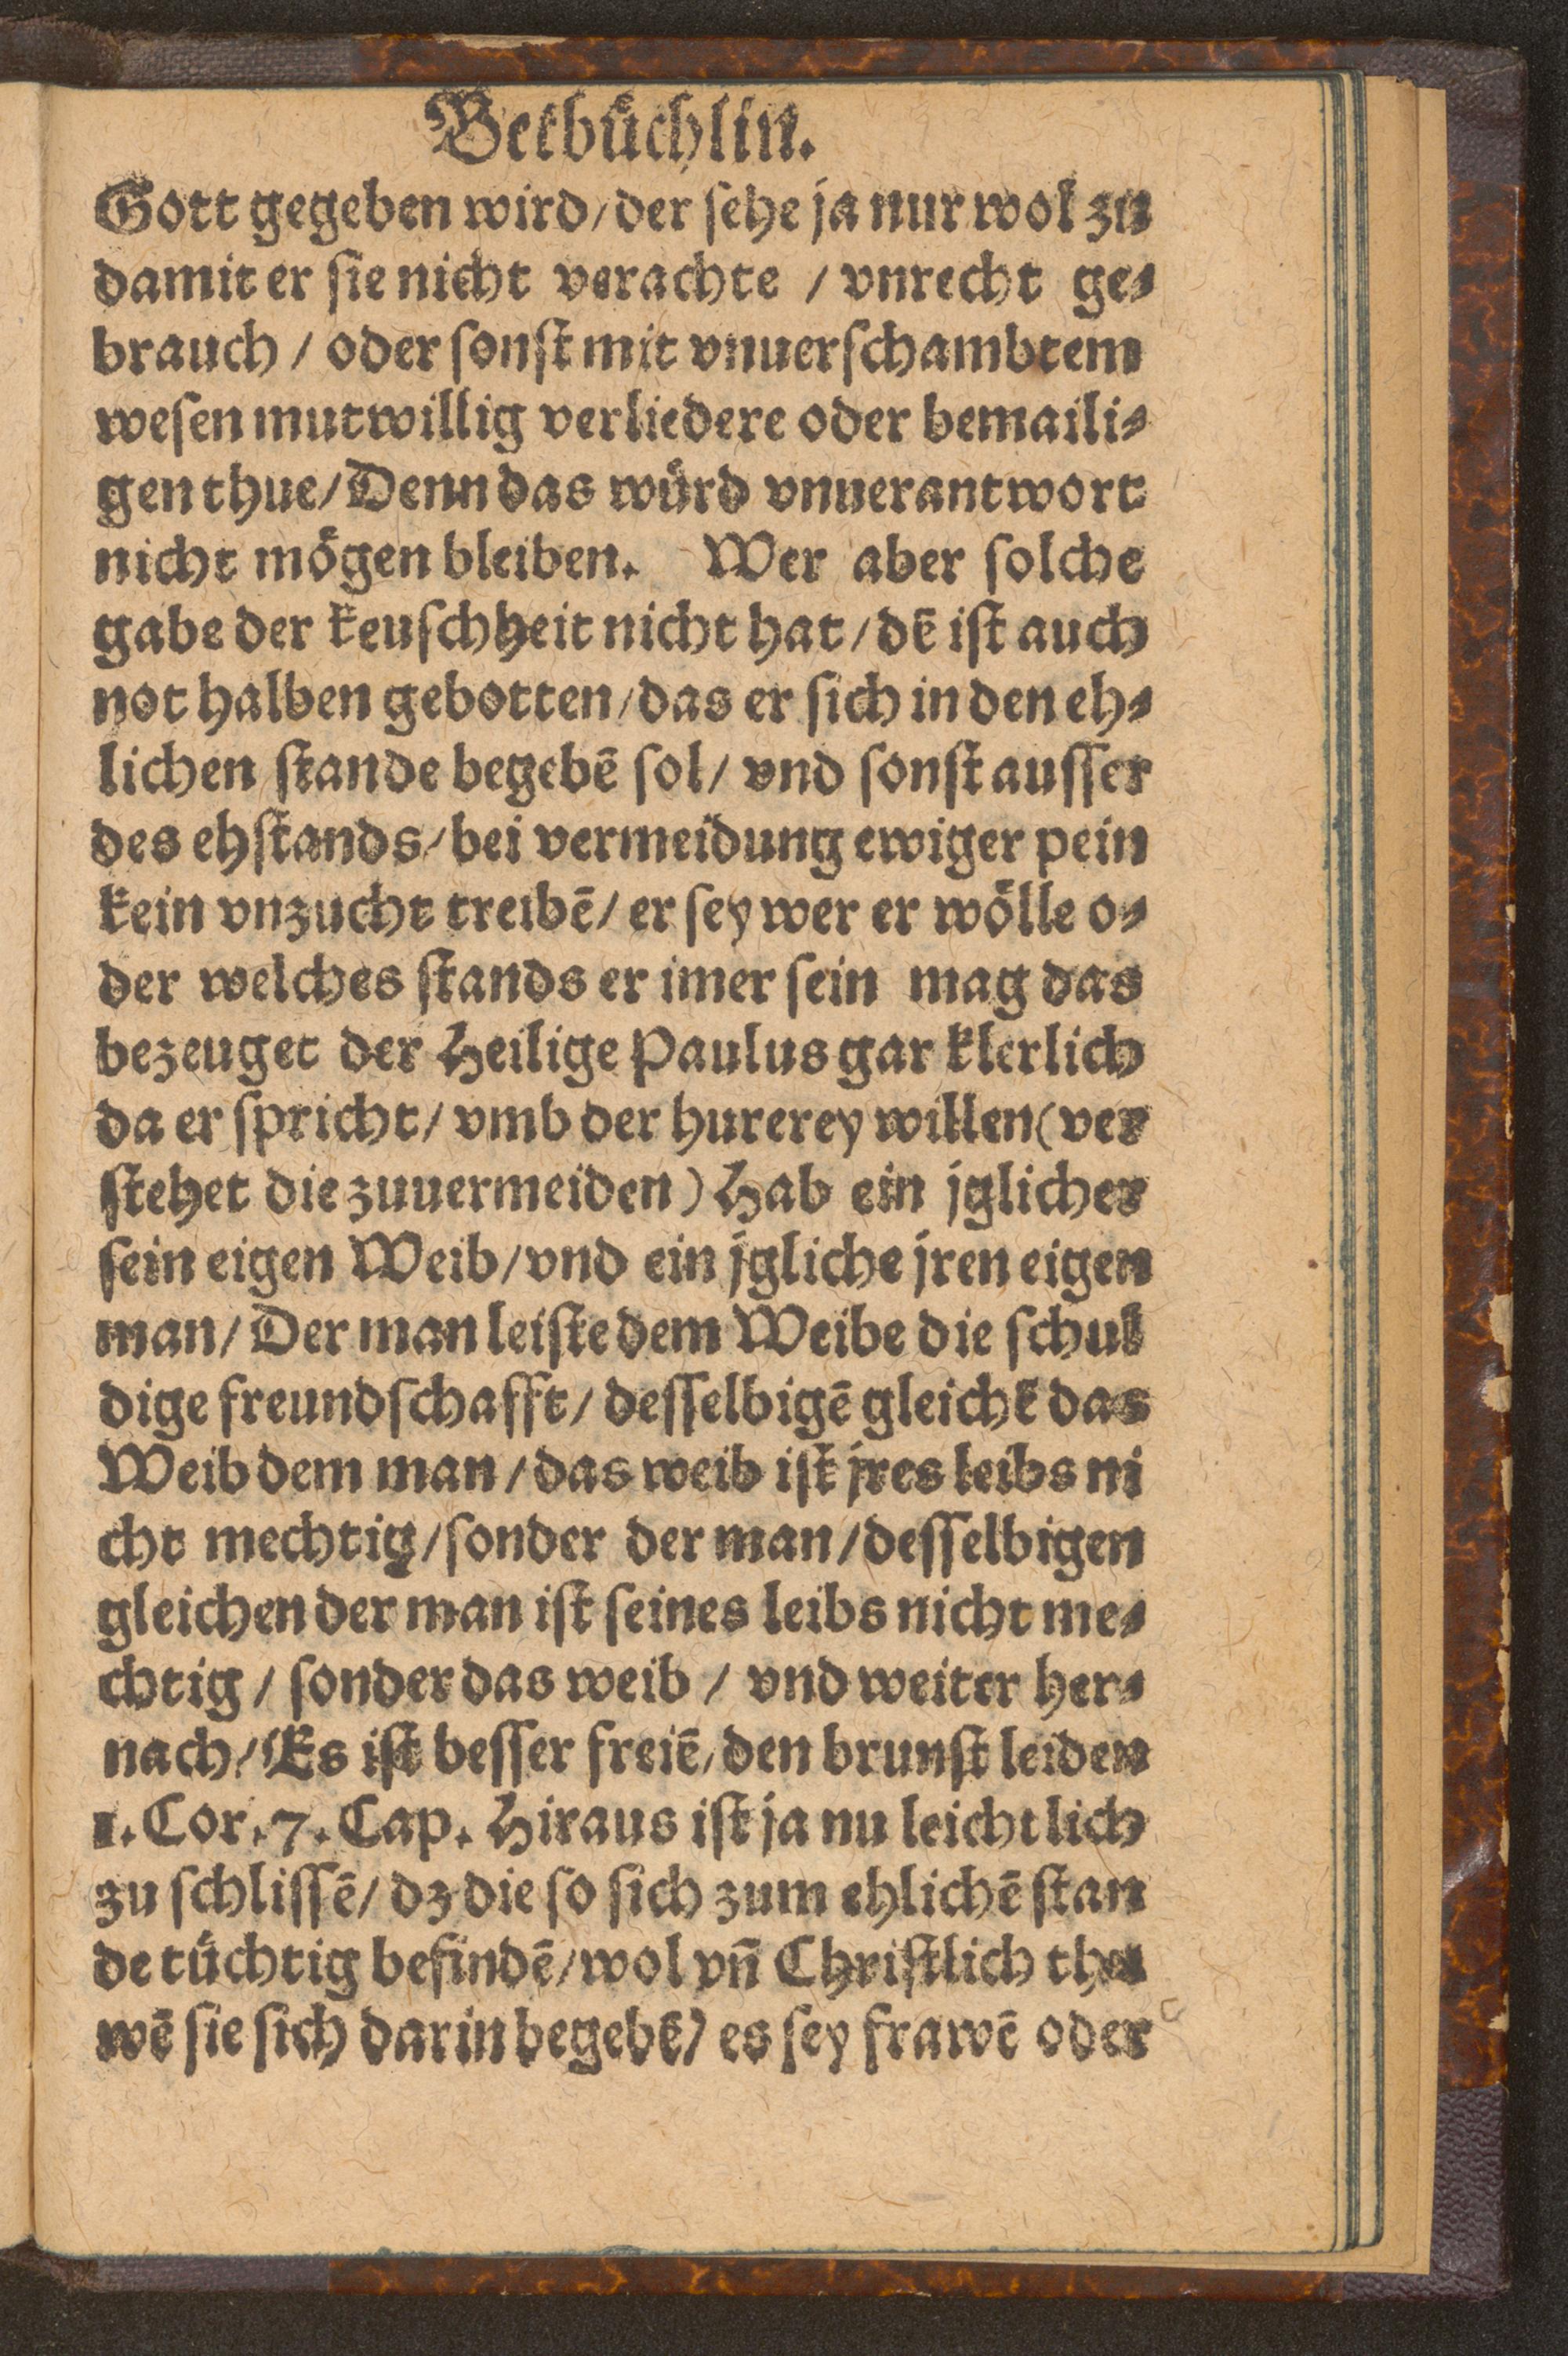 Betbuͤchlin.
Gott gegeben wird/der ſehe ja nur wol zu
damit er ſie nicht verachte / vnrecht ge⸗
brauch / oder ſonſt mit vnuerſchambtem
weſen mutwillig verliedere oder bemaili⸗
gen thue/Denn das wuͤrd vnuerantwort
nicht moͤgen bleiben. Wer aber ſolche
gabe der keuſchheit nicht hat/dē iſt auch
not halben gebotten/das er ſich in den eh⸗
lichen ſtande begebē ſol/ vnd ſonſt auſſer
des ehſtands/bei vermeidung ewiger pein
kein vnzucht treibē/ er ſey wer er woͤlle o⸗
der welches ſtands er imer ſein mag das
bezeuget der Heilige Paulus gar klerlich
da er ſpricht/ vmb der hurerey willen(ver
ſtehet die zuuermeiden) Hab ein jglicher
ſein eigen Weib/vnd ein jgliche jren eigen
man/ Der man leiſte dem Weibe die ſchul
dige freundſchafft/ deſſelbigē gleichē das
Weib dem man/das weib iſt jres leibs ni
cht mechtig/ſonder der man/deſſelbigen
gleichen der man iſt ſeines leibs nicht me⸗
chtig / ſonder das weib / vnd weiter her⸗
nach/Es iſt beſſer freiē/den brunſt leiden
1.Cor.7.Cap. Hiraus iſt ja nu leichtlich
zu ſchliſſē/ dz die ſo ſich zum ehlichē ſtan
de tuͤchtig befindē/wol vn̄ Chriſtlich thu
wē ſie ſich darin begebē/ es ſey frawē oder